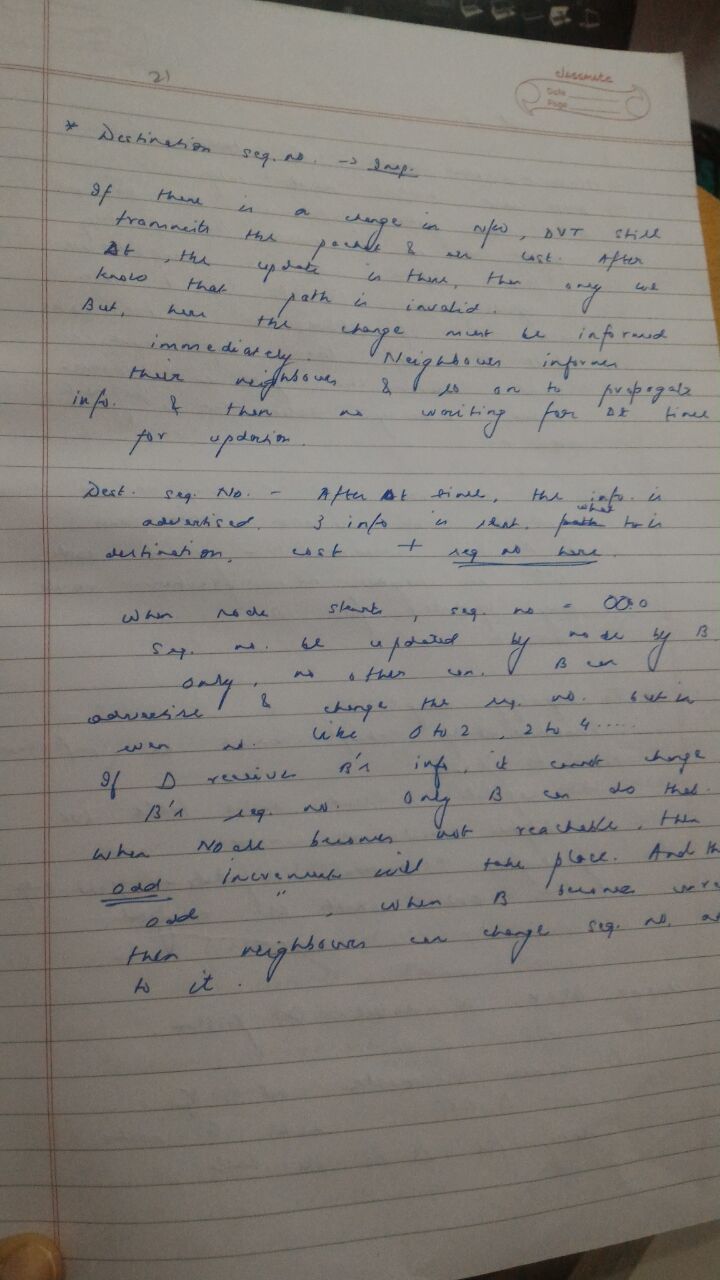 21
classmate
Date
Page
* Destination seq. no. → Imp.
If there is a change in N/w, DVT still
transmits the packet & cost. After
Δt, the update is there, then only we
know that path is invalid.
But, here the change must be informed
immediately. Neighbours informs
their neighbours & so on to propagate
info. & then no waiting for Δt time
for updation.
Dest. seq. No. - After Δt time, the info. is
advertised. 3 info is sent. what is
destination, cost + seq no here.
When node starts, seq. no = 00:0
Seq. no. be updated by node by B
only, no other can. B can
advertise & change the seq. no. but in
even no. like 0 to 2, 2 to 4.....
If D receives B's info, it cannot change
B's seq. no. Only B can do that.
When Node becomes not reachable, then
odd increment will take place. And th
odd " , when B becomes unre
then neighbours can change seq. no. a
to it.